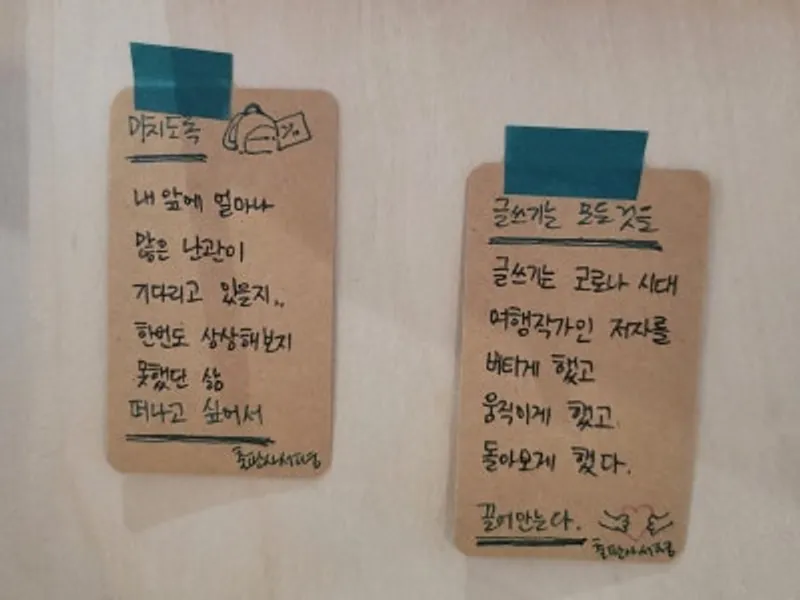 미치도록
내 앞에 얼마나
많은 난관이
기다리고 있을지..
한번도 상상해보지
못했던 삶
떠나고 싶어서
출판사서평
글쓰기는 모든것을
글쓰기는 코로나 시대
여행작가인 저자를
버티게 했고
움직이게 했고.
돌아보게 했다.
끌어안는다.
출판사서평